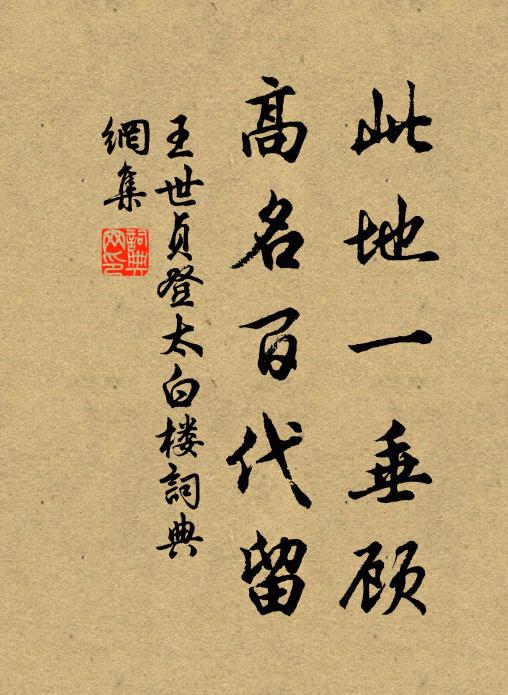 此地一垂顾
高名百代留
王世贞登太白楼詞典
網集
詞典
网印